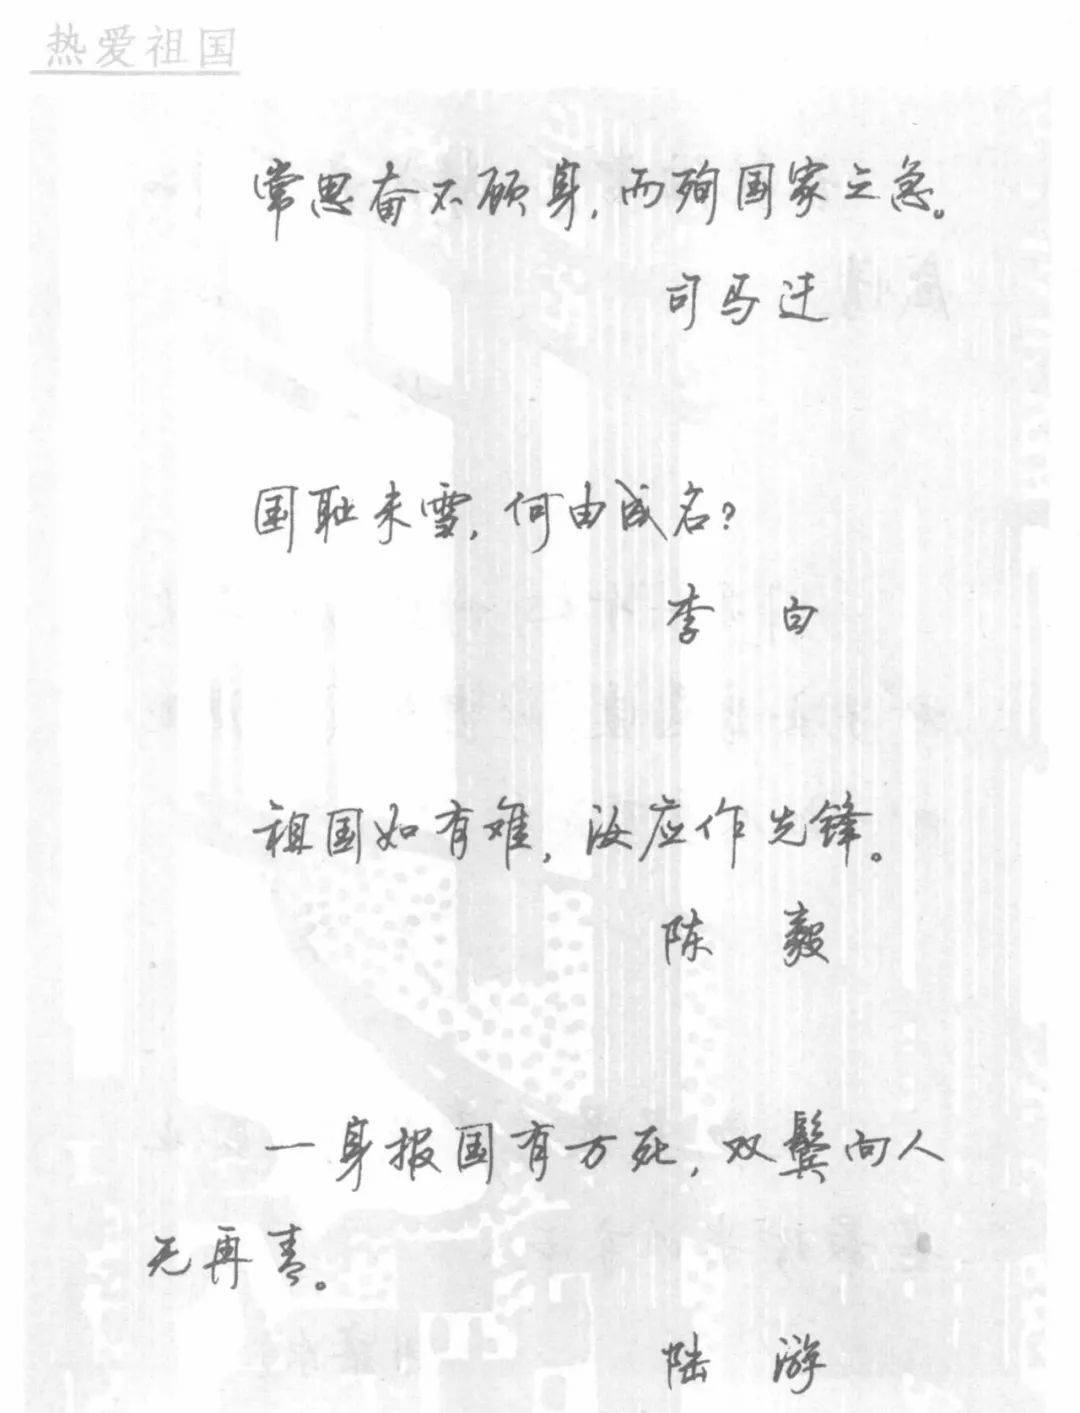 热爱祖国
常思奋不顾身，而殉国家之急。
司马迁
国耻未雪，何由成名？
李 白
祖国如有难，汝应作先锋。
陈 毅
一身报国有万死，双鬓向人
无再青。
陆 游